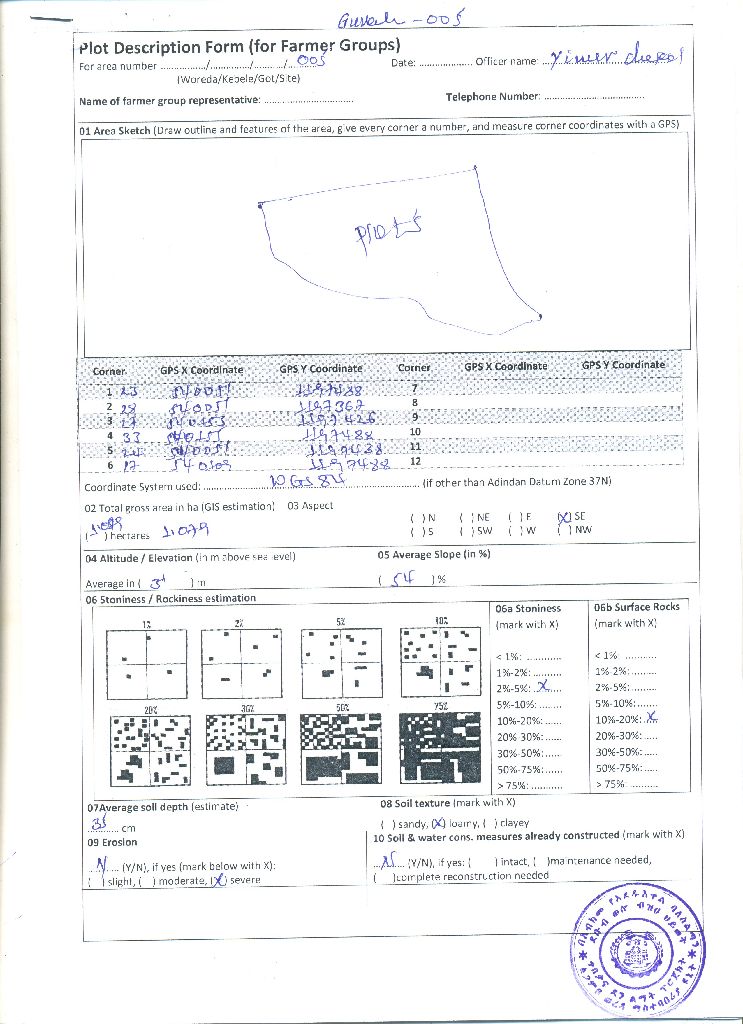 Plot Description Form (for Farmer Groups)
For area number ............../............../........./...005 Date: ................... Officer name: ...
(Woreda/Kebele/Got/Site)
Name of farmer group representative: ............................... Telephone Number: ...................................
01 Area Sketch (Draw outline and features of the area, give every corner a number, and measure corner coordinates with a GPS)
Corner GPS X Coordinate GPS Y Coordinate Corner GPS X Coordinate GPS Y Coordinate
1 7
2 28 8
3 9
4 33 1197488 10
5 11
6 17 1197488 12
Coordinate System used: WGS 84 (if other than Adindan Datum Zone 37N)
02 Total gross area in ha (GIS estimation) 03 Aspect
( ) N ( ) NE ( ) E (X) SE
( ) hectares 1.079 ( ) S ( ) SW ( ) W ( ) NW
04 Altitude / Elevation (in m above sea level) 05 Average Slope (in %)
Average in ( ) m ( 54 ) %
06 Stoniness / Rockiness estimation
1% 2% 5% 10%
20% 30% 50% 75%
06a Stoniness 06b Surface Rocks
(mark with X) (mark with X)
< 1%: ............ < 1%: ...........
1%-2%: .......... 1%-2%: .......
2%-5%: ..X.... 2%-5%: ......
5%-10%: ........ 5%-10%: .....
10%-20%: ...... 10%-20%: .X..
20%-30%: ...... 20%-30%: .....
30%-50%: ...... 30%-50%: .....
50%-75%: ...... 50%-75%: .....
> 75%: ........... > 75%: ..........
07Average soil depth (estimate) 08 Soil texture (mark with X)
35 cm ( ) sandy, (X) loamy, ( ) clayey
09 Erosion 10 Soil & water cons. measures already constructed (mark with X)
..N.... (Y/N), if yes (mark below with X): ...N.... (Y/N), if yes: ( ) intact, ( )maintenance needed,
( ) slight, ( ) moderate, (X) severe ( )complete reconstruction needed